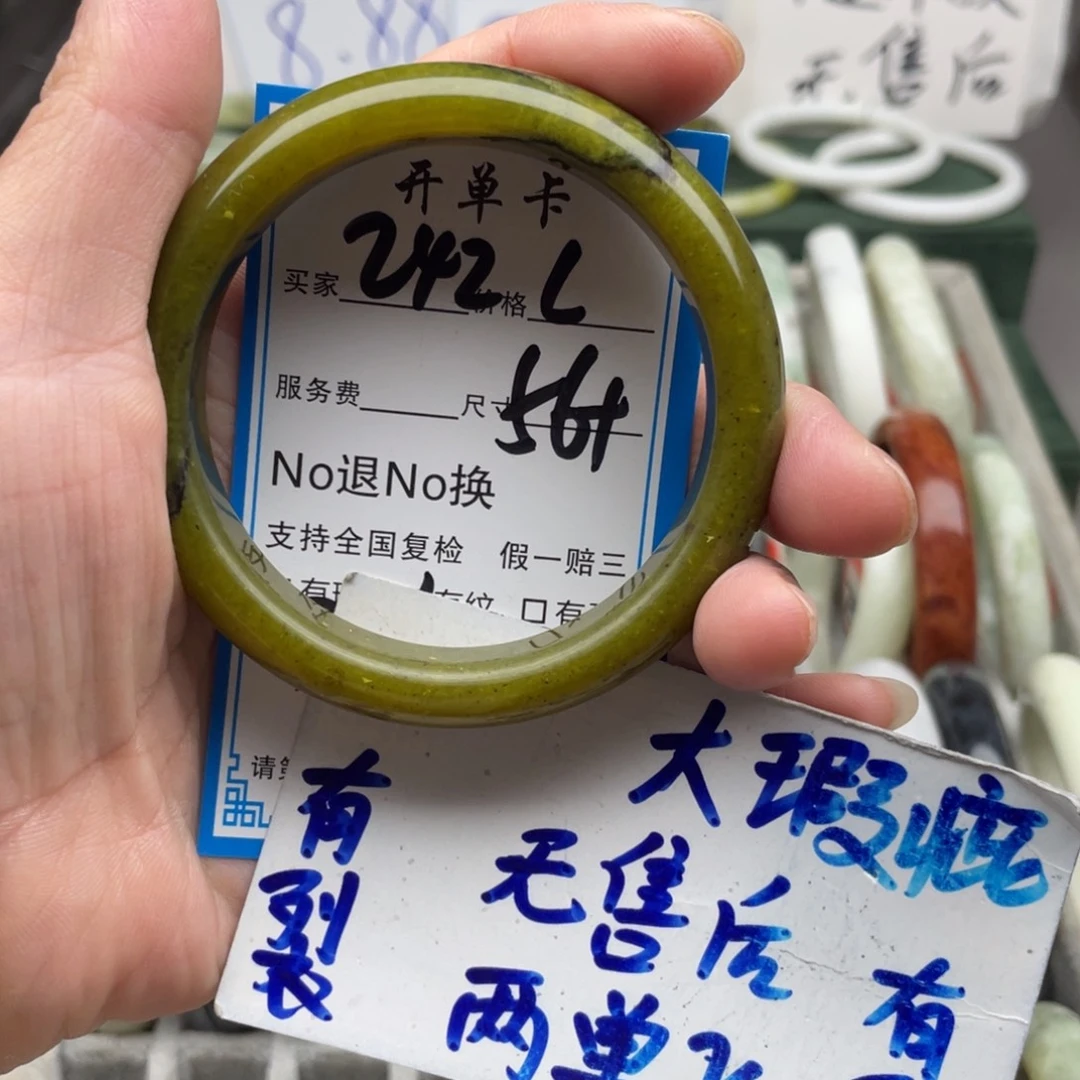 8.88
无售后
开单卡
买家 242 价格 L
服务费 尺寸 56+
No退No换
支持全国复检 假一赔三
有纹 口有
请
大瑕疵
有裂
无售后
有
两单